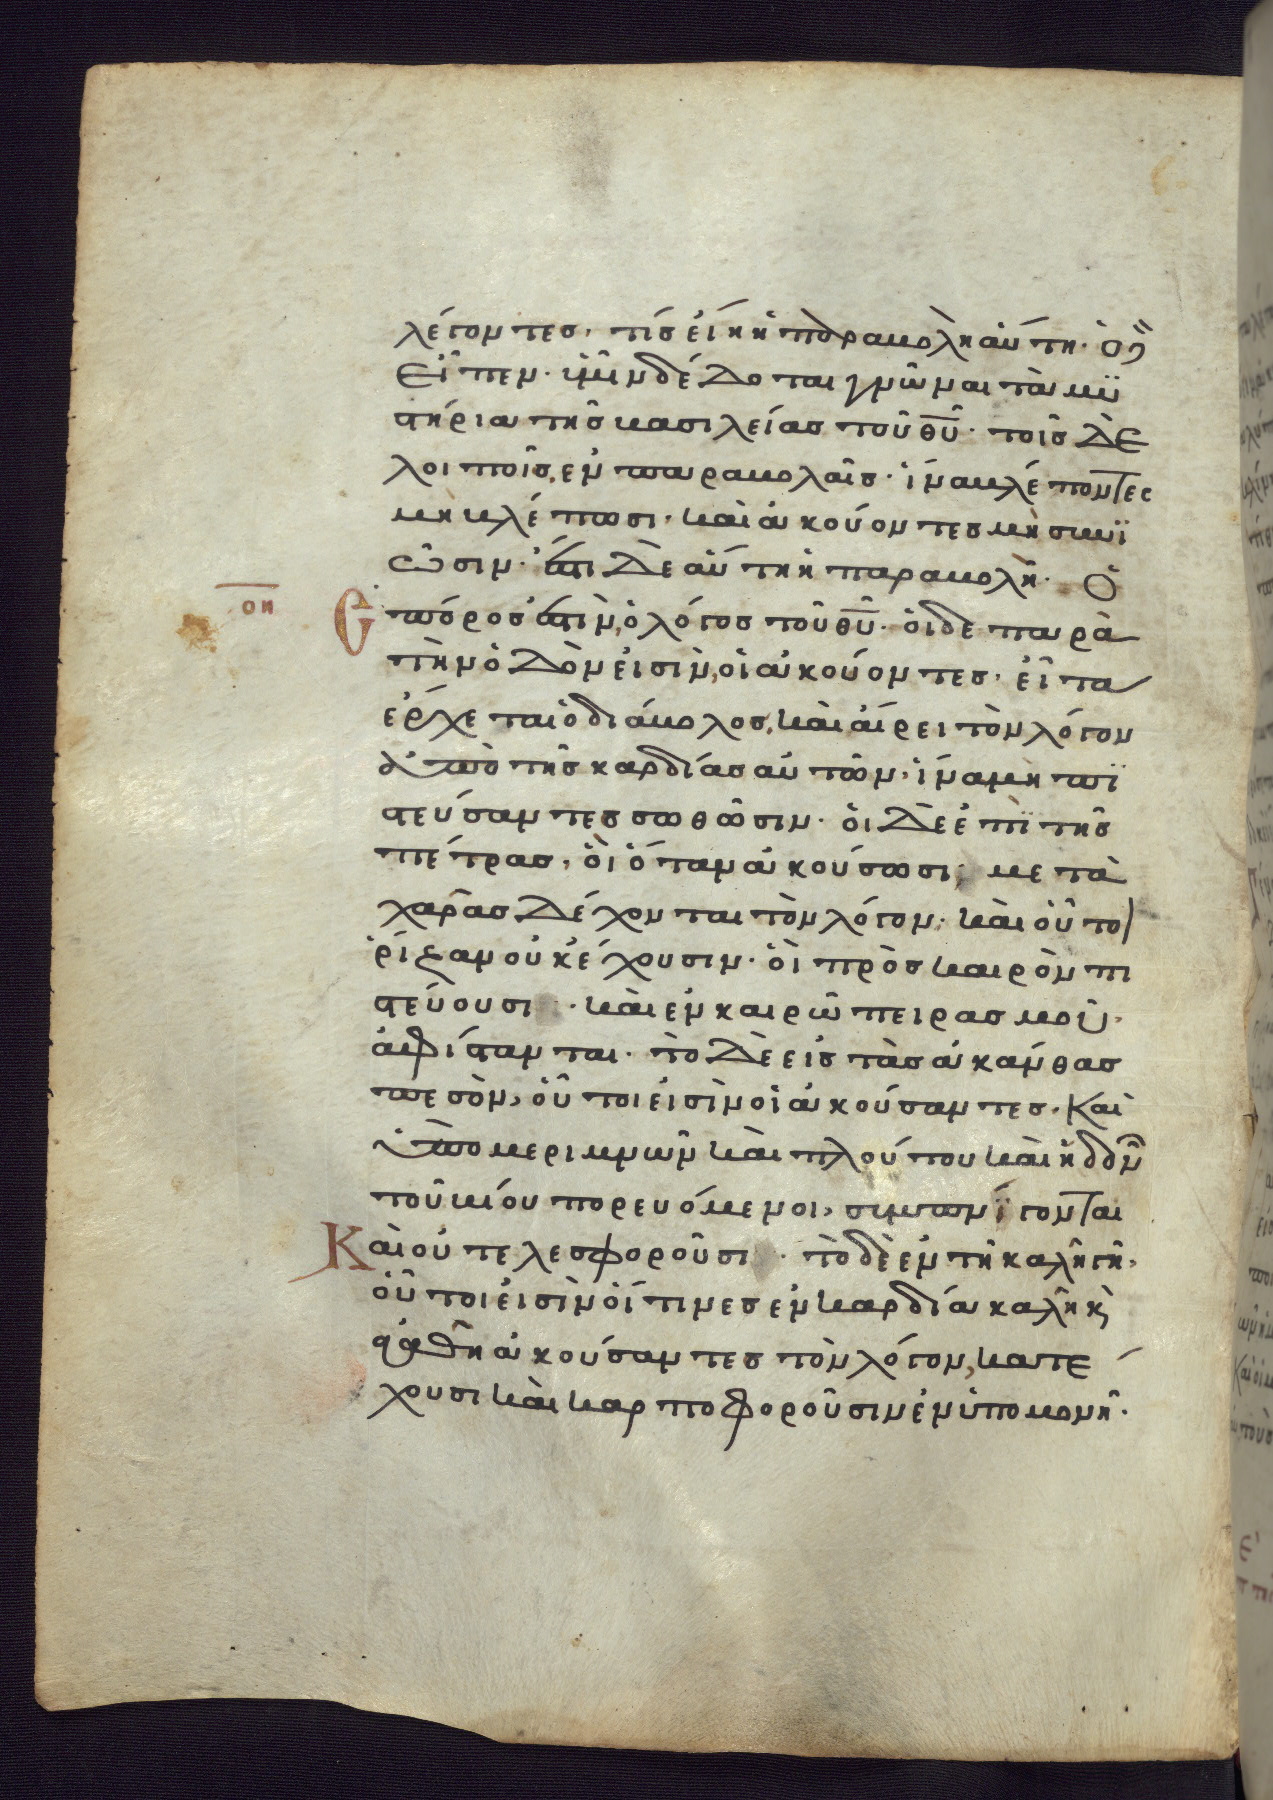 λέγοντες· τίς εἴη ἡ παραβολὴ αὕτη· ὁ δὲ
εἶπεν· ὑμῖν δέδοται γνῶναι τὰ μυ
στήρια τῆς βασιλείας τοῦ θυ· τοῖς δὲ
λοιποῖς, ἐν παραβολαῖς· ἵνα βλέποντες
μὴ βλέπωσι· καὶ ἀκούοντες μὴ συνϊ
ῶσιν· ἔστι δὲ αὕτη ἡ παραβολή· Ὁ
οη
σπόρος ἐστὶν, ὁ λόγος τοῦ θυ· οἱ δὲ παρὰ
τὴν ὁδὸν εἰσὶν, οἱ ἀκούοντες· εἶτα
ἔρχεται ὁ διάβολος, καὶ αἴρει τὸν λόγον
ἀπὸ τῆς καρδίας αὐτῶν· ἵνα μὴ πι
στεύσαντες σωθῶσιν· οἱ δὲ ἐπὶ τῆς
πέτρας, οἳ ὅταν ἀκούσωσι, μετὰ
χαρᾶς δέχονται τὸν λόγον· καὶ οὗτοι
ῥίζαν οὐκ ἔχουσιν· οἳ πρὸς καιρὸν πι
στεύουσι· καὶ ἐν καιρῶ πειρασμοῦ,
ἀφίστανται· τὸ δὲ εἰς τὰς ἀκάνθας
πεσὸν, οὗτοι εἰσὶν οἱ ἀκούσαντες· Καὶ
ὑπὸ μεριμνῶν καὶ πλούτου καὶ ἡδονῶν
τοῦ βίου πορευόμενοι, συμπνίγονται
Καὶ οὐ τελεσφοροῦσι· τὸ δὲ ἐν τῆ καλῆ γῆ,
οὗτοι εἰσὶν οἵτινες ἐν καρδία καλῆ κ
ἀγαθῆ ἀκούσαντες τὸν λόγον, κατέ
χουσι καὶ καρποφοροῦσιν ἐν ὑπομονῆ·